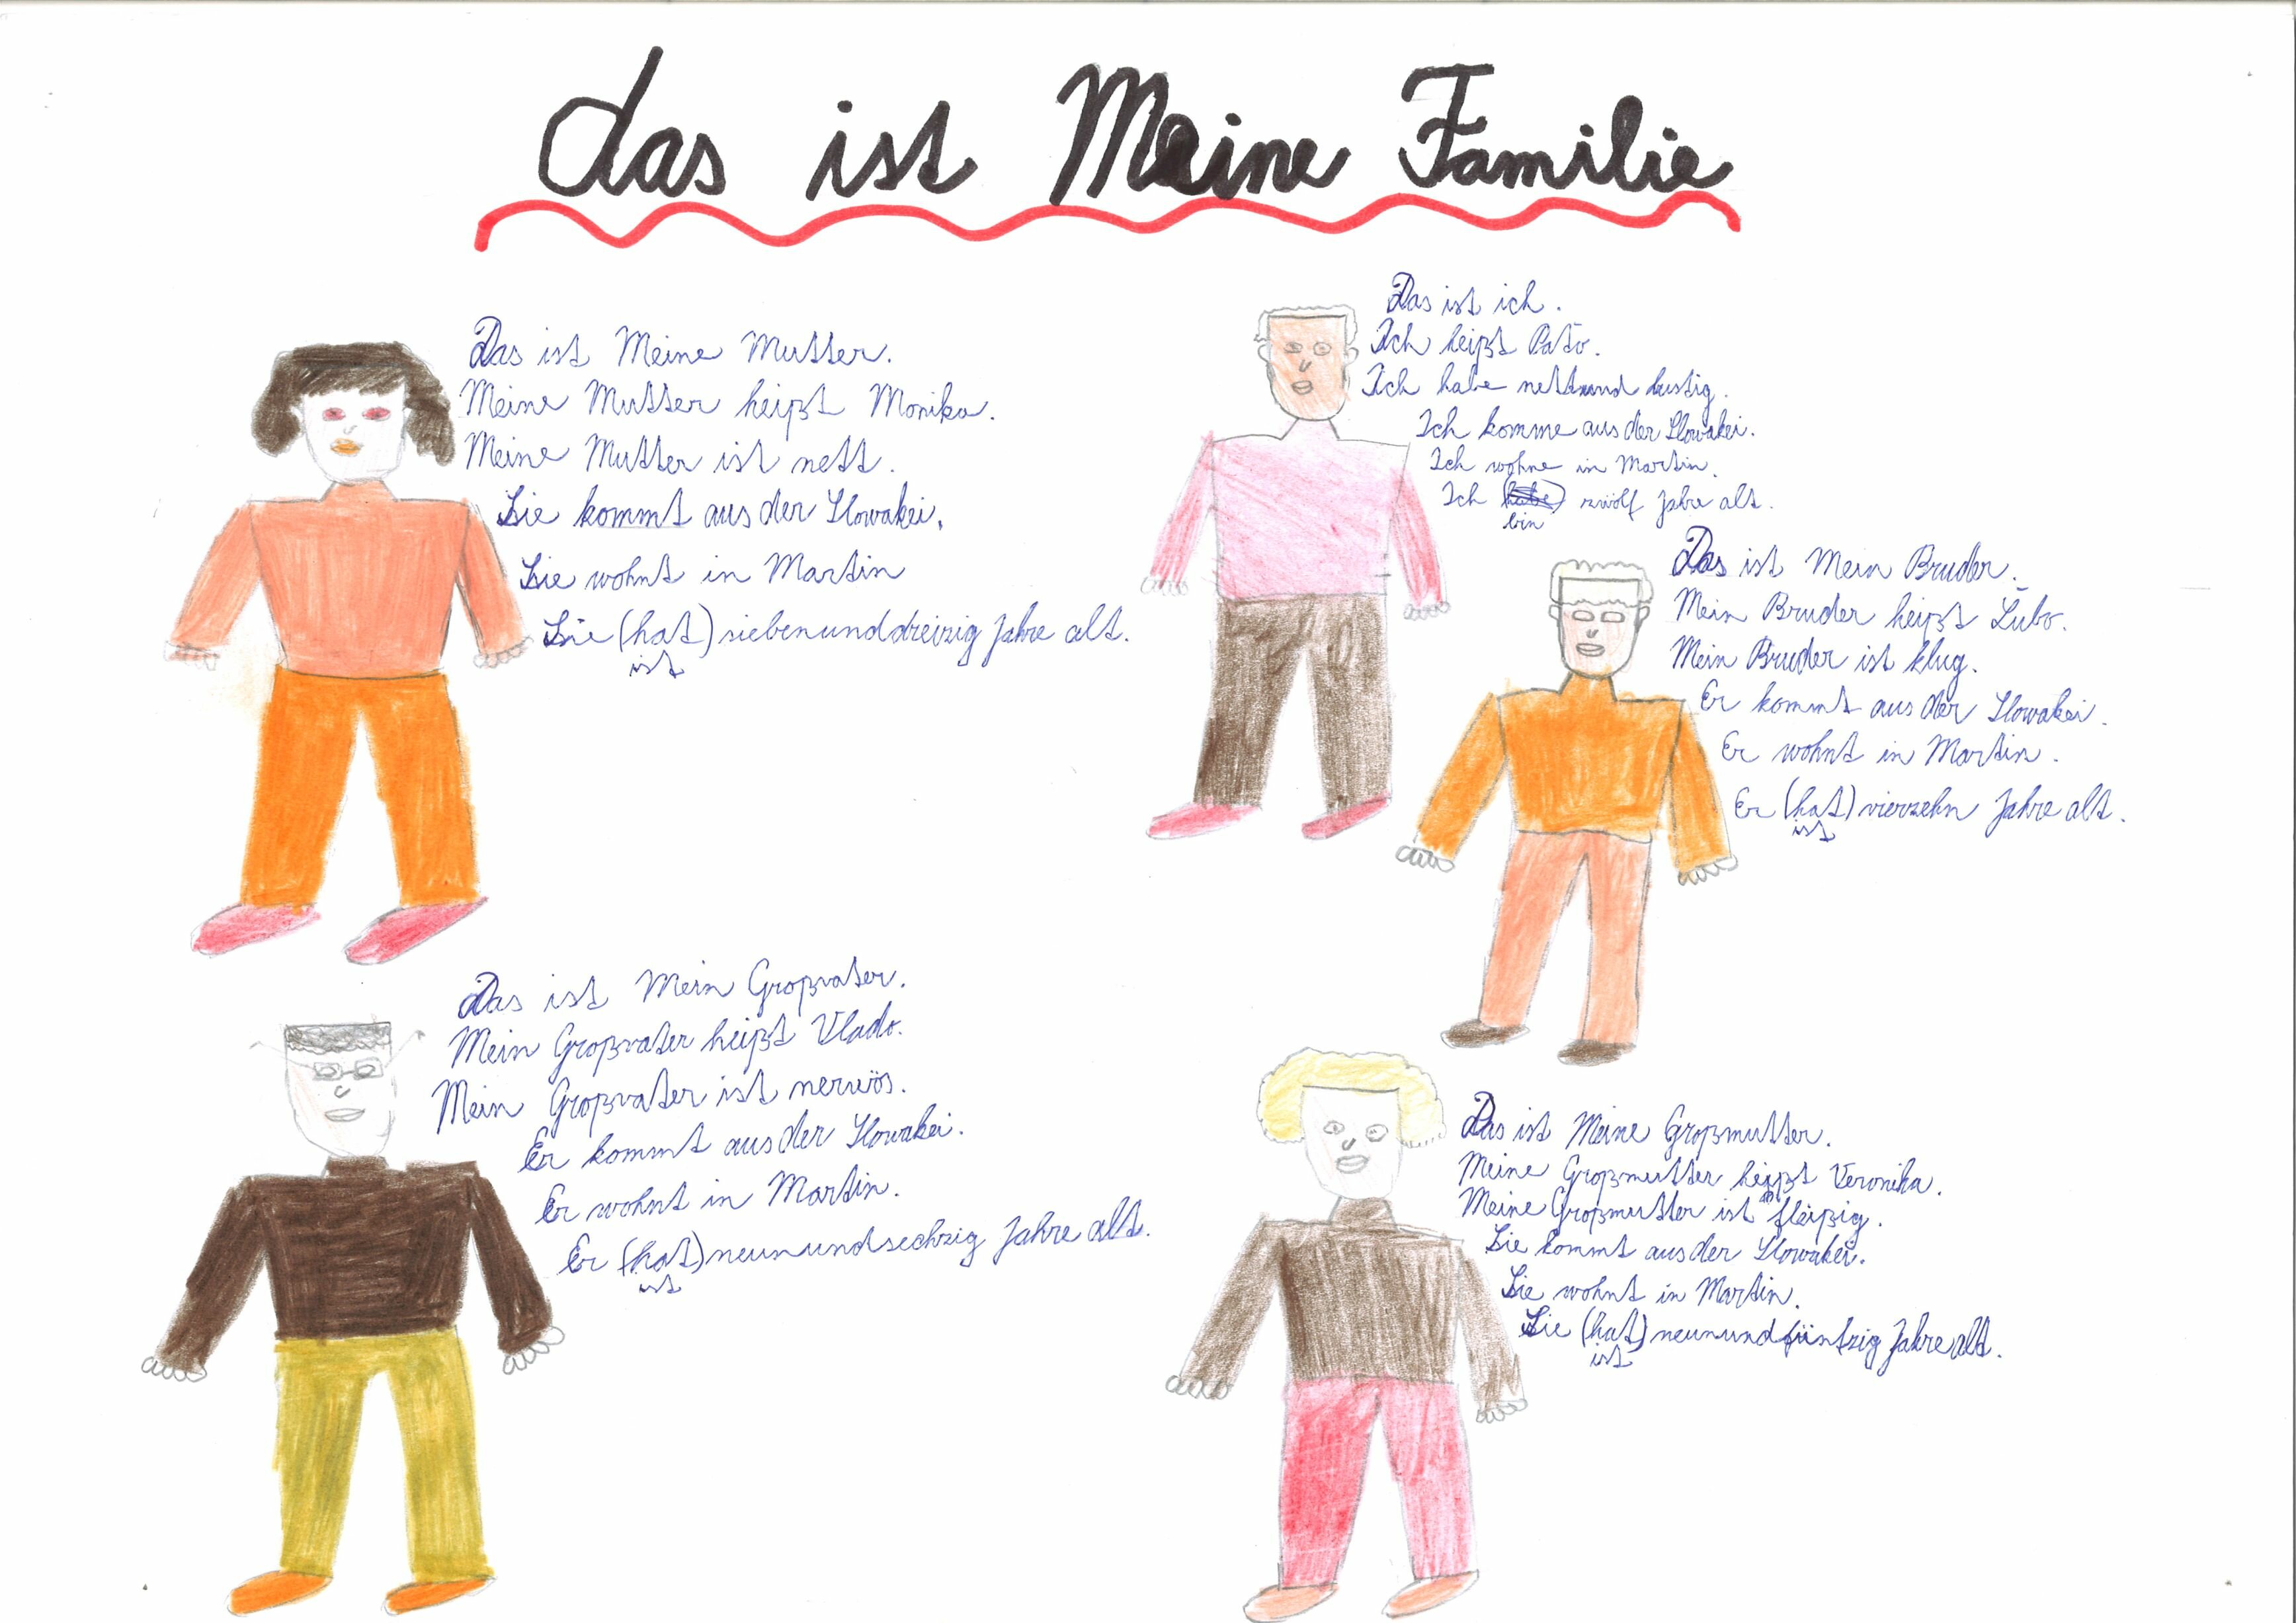 das ist Meine Familie
Das ist Meine Mutter.
Meine Mutter heißt Monika.
Meine Mutter ist nett.
Sie kommt aus der Slowakei.
Sie wohnt in Martin
Sie (hat) siebenunddreizig Jahre alt.
ist
Das ist ich.
Ich heißt Paťo.
Ich habe nett und lustig.
Ich komme aus der Slowakei.
Ich wohne in Martin.
Ich (habe) zwölf Jahre alt.
bin
Das ist Mein Bruder.
Mein Bruder heißt Ľubo.
Mein Bruder ist klug.
Er kommt aus der Slowakei.
Er wohnt in Martin.
Er (hat) vierzehn Jahre alt.
ist
Das ist Mein Großvater.
Mein Großvater heißt Vlado.
Mein Großvater ist nervös.
Er kommt aus der Slowakei.
Er wohnt in Martin.
Er (hat) neunundsechzig Jahre alt.
ist
Das ist Meine Großmutter.
Meine Großmutter heißt Veronika.
Meine Großmutter ist fleißig.
Sie kommt aus der Slowakei.
Sie wohnt in Martin.
Sie (hat) neunundfünfzig Jahre alt.
ist